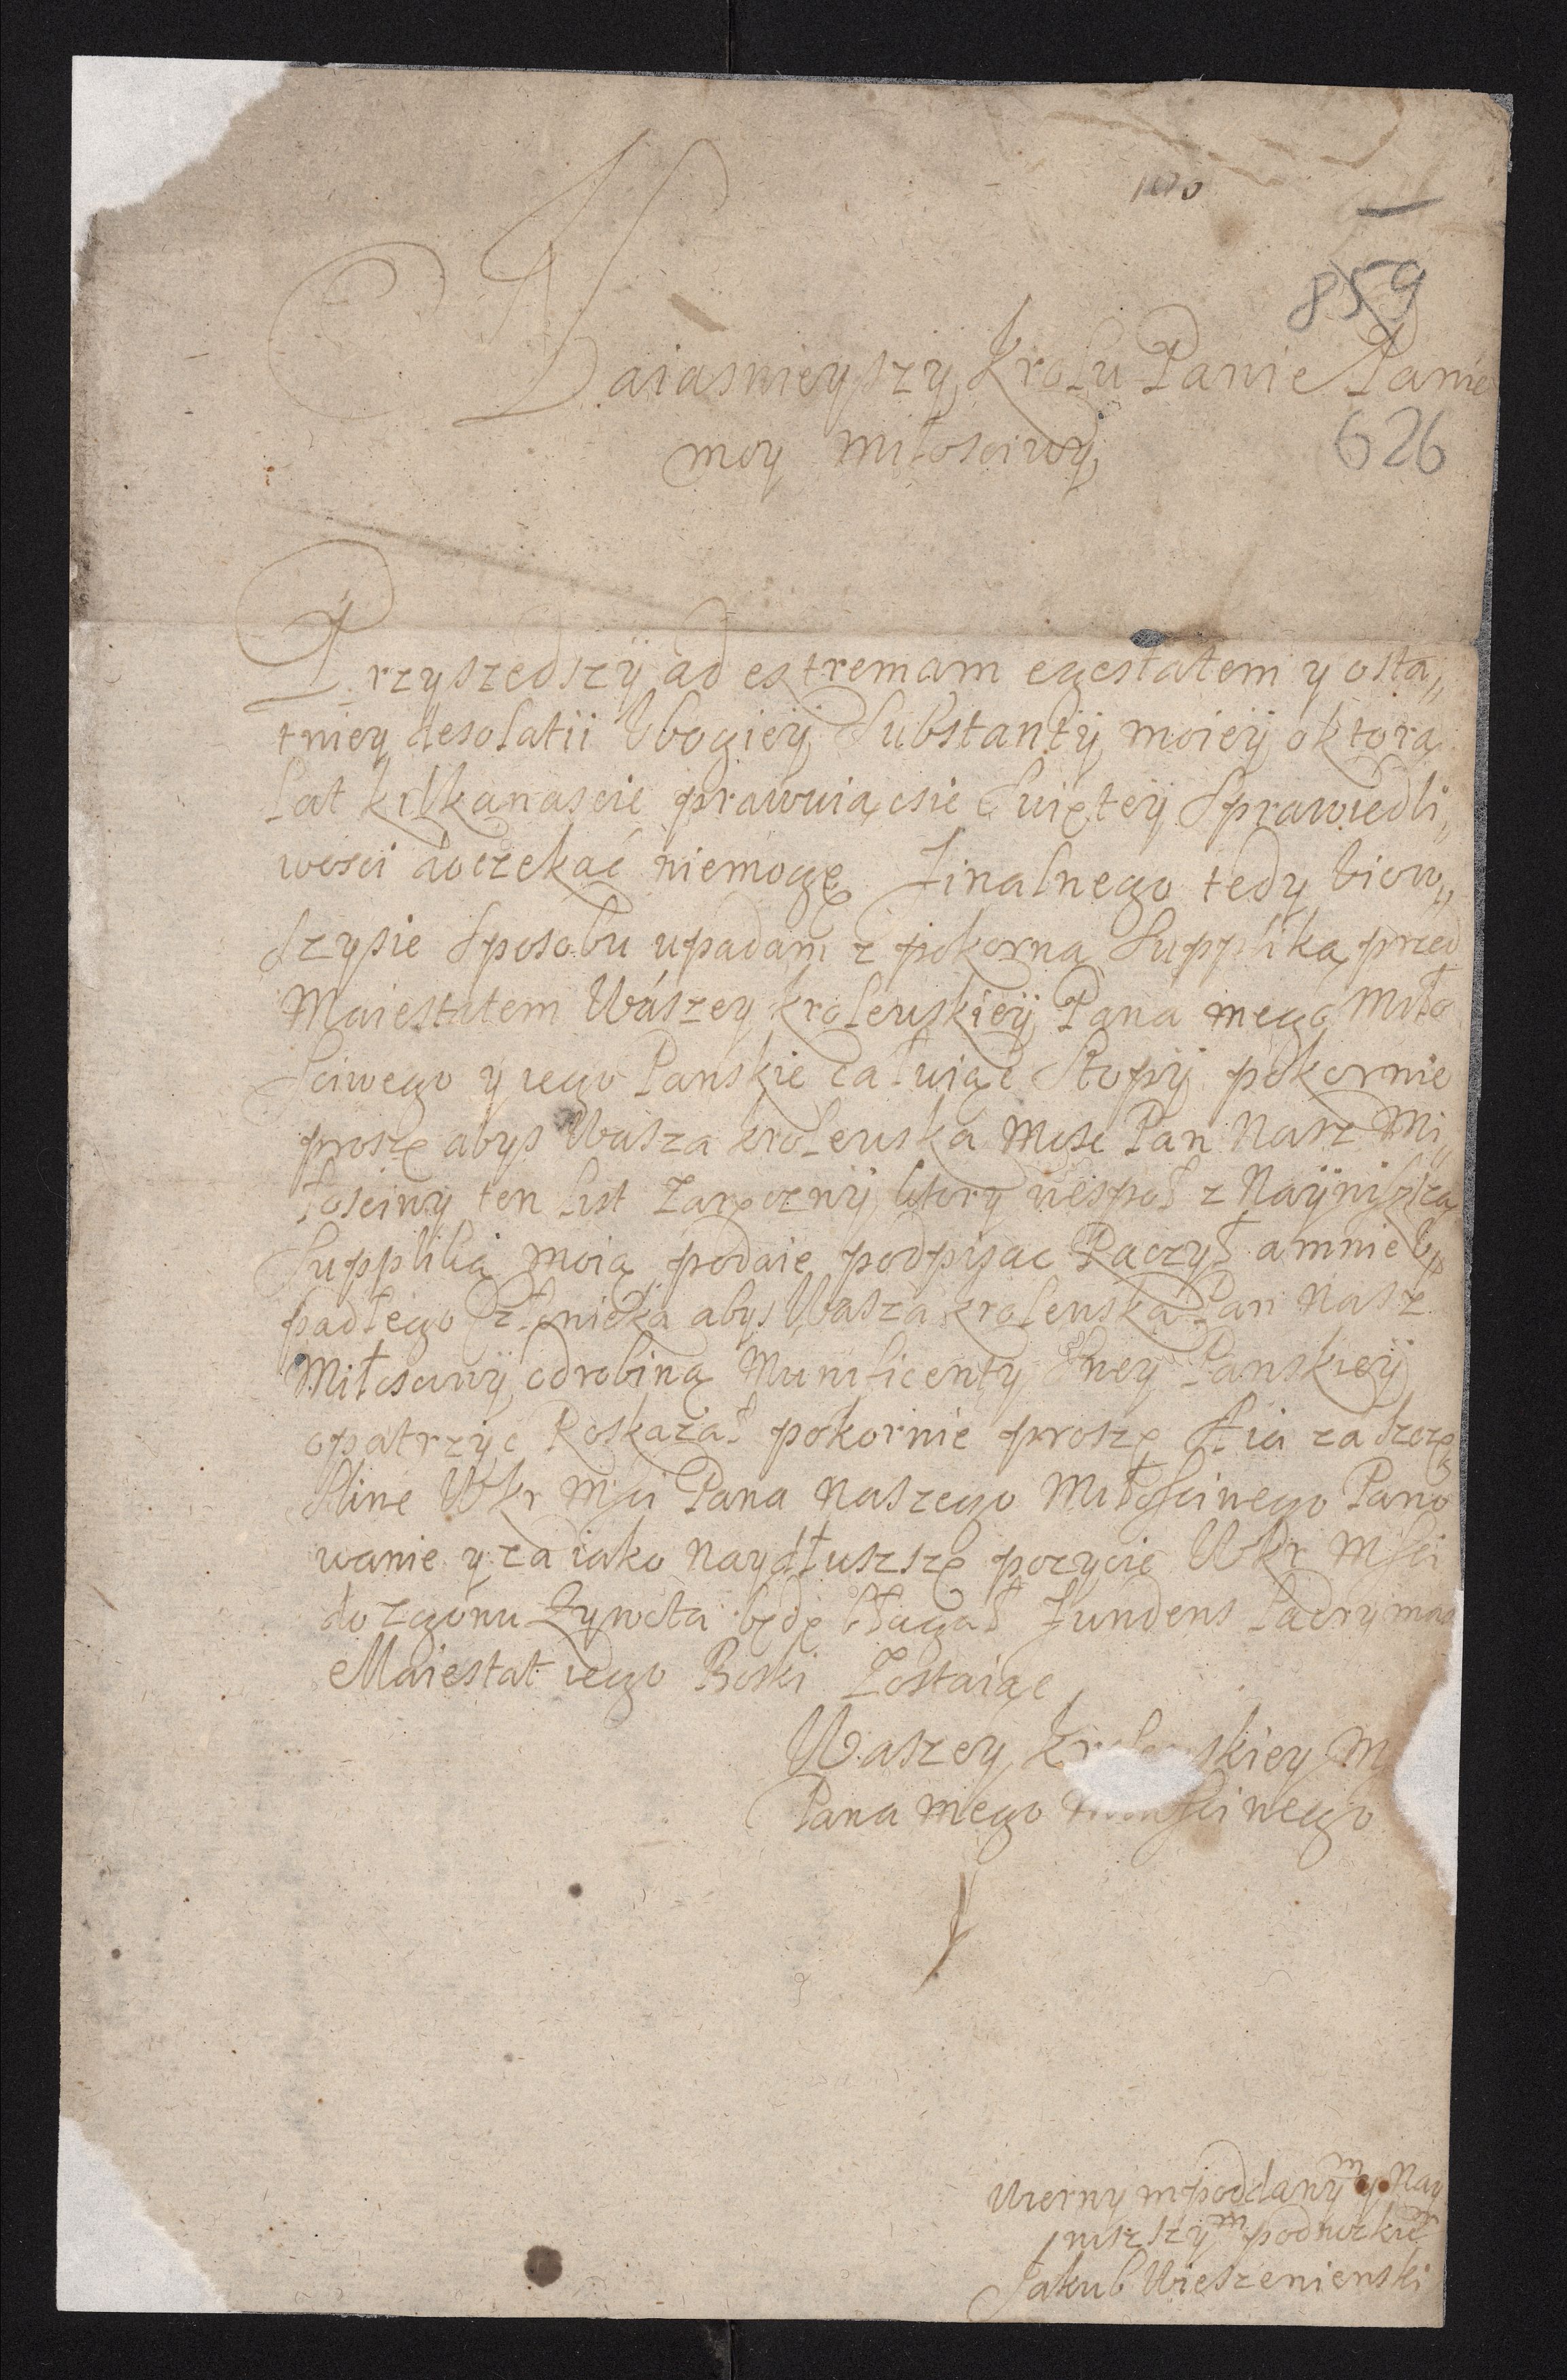 859
Naiasnieyszy Krolu Panie Panie
moy Miłosciwy
626
Przyszedszÿ ad extremam egestatem y osta„
tniey desolatii Ubogieÿ Substantÿ moieÿ oktorą
Lat kilkanascie prawuiącsie Swięteÿ Sprawiedli„
wosci doczekać niemogę Finalnego tedy biow„
szysie Sposobu upadam z pokorną Suppliką przed
Maiestatem Waszey krolewskieÿ Pana mego Miło
Sciwego y iego Panskie całuiąc Stopÿ pokornie
proszę abys Wasza krolewska Mosc Pan Nasz Mi„
łosciwy ten List Zaręcznÿ ktory wespoł z Nayniższą
Suppliką moią podaię podpisac Raczył amnie U„
padłego człowieka abys Wasza krolewska Pan Nasz
Miłosciwÿ odrobiną Munificenty Swey Panskieÿ
opatrzyc Roskazał pokornie proszę A ia za Szczę
sliwe WKr Msci Pana Naszego Miłosciwego Pano
wanie y za iako naydłuszszę pozycie WKr Msci
do Zgonu Zywota będę błagał fundens Lacrymas
Maiestat iego Boski Zostaiąc
Waszey Krolewskiey M
Pana mego Miłosciwego
Wiernym poddanym y Nay
niszszym podnozkie
Jakub Wieszenienski